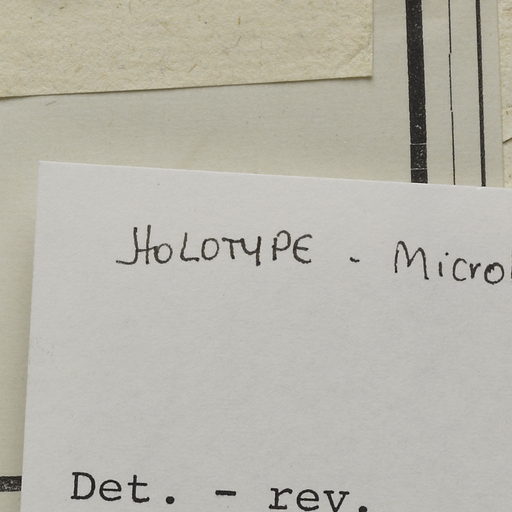 HOLOTYPE - Micro
Det. - rev.